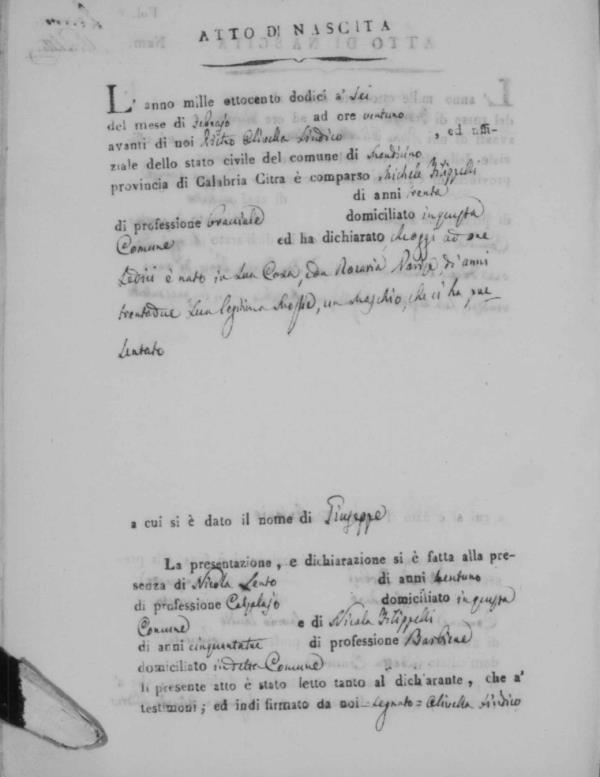 Fol.
Num.
ATTO DI NASCITA
L' anno mille ottocento dodici a' sei
del mese di Febrajo ad ore ventuno
avanti di noi Pietro Olivella Sindico, ed uffi-
ziale dello stato civile del comune di Mendicino
provincia di Calabria Citra è comparso Michele Filippelli
di anni trenta
di professione bracciale domiciliato in questa
Comune ed ha dichiarato, che oggi ad ore
sedici è nato in sua Casa, da Rosaria di anni
trentadue sua legitima moglie, un maschio, che ci ha pre
sentato
a cui si è dato il nome di Giuseppe
La presentazione, e dichiarazione si è fatta alla pre-
senza di Nicola Lento di anni trentuno
di professione Calzolajo domiciliato in questa
Comune e di Nicola Filippelli
di anni cinquantatre di professione Barbiere
domiciliato in detta Comune
Il presente atto è stato letto tanto al dich'arante, che a'
testimoni; ed indi firmato da noi = segnato = Olivella Sindico